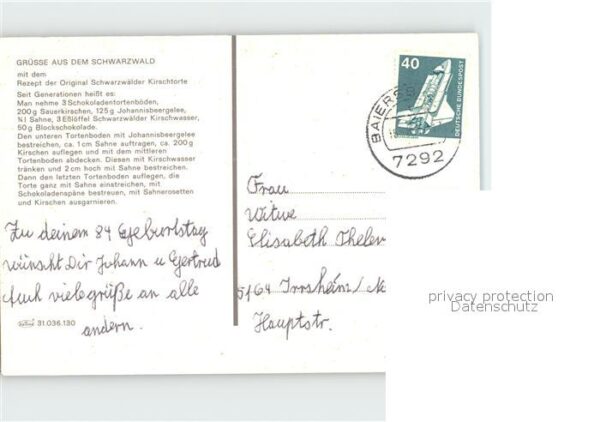 GRÜSSE AUS DEM SCHWARZWALD
mit dem
Rezept der Original Schwarzwälder Kirschtorte
Seit Generationen heißt es:
Man nehme 3 Schokoladentortenböden,
200g Sauerkirschen, 125g Johannisbeergelee,
¾l Sahne, 3 Eßlöffel Schwarzwälder Kirschwasser,
50g Blockschokolade.
Den unteren Tortenboden mit Johannisbeergelee
bestreichen, ca. 1cm Sahne auftragen, ca. 200g
Kirschen auflegen und mit dem mittleren
Tortenboden abdecken. Diesen mit Kirschwasser
tränken und 2cm hoch mit Sahne bestreichen.
Dann den letzten Tortenboden auflegen, die
Torte ganz mit Sahne einstreichen, mit
Schokoladenspäne bestreuen, mit Sahnerosetten
und Kirschen ausgarnieren.
Zu deinem 84 Geburtstag
wünscht Dir Johann u Gertrud
Auch viele grüße an alle
andern.
31.036.130
40
DEUTSCHE BUNDESPOST
BAIERS
7292
Frau
Witwe
Elisabeth Thelen
5164 Irrsheim/
Hauptstr.
privacy protection
Datenschutz